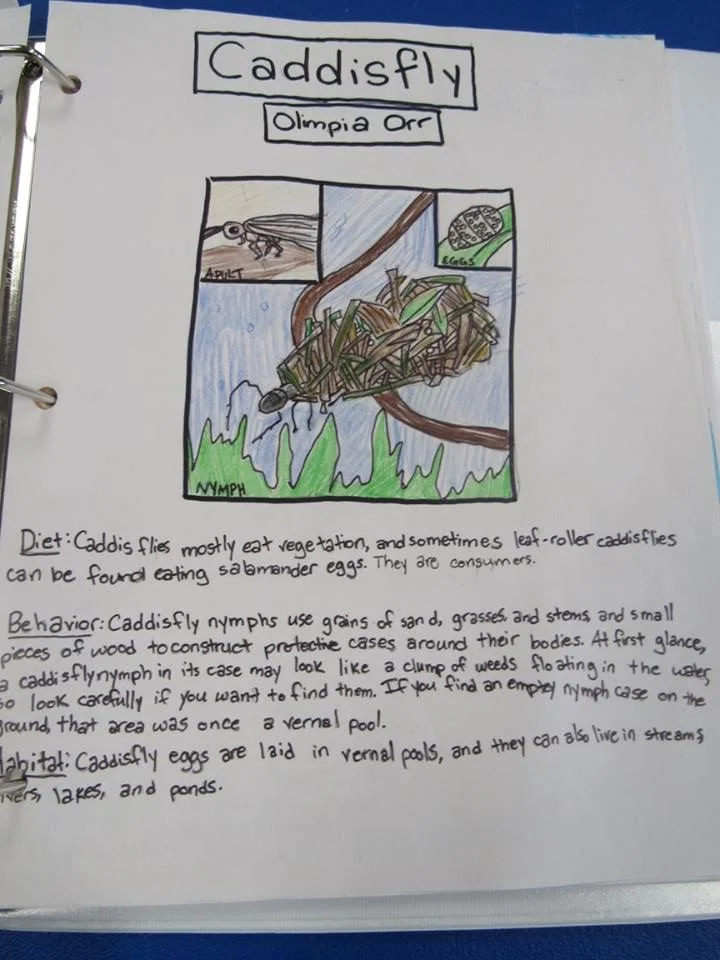 Caddisfly
Olimpia Orr
ADULT
EGGS
NYMPH
Diet: Caddis flies mostly eat vegetation, and sometimes leaf-roller caddisflies
can be found eating salamander eggs. They are consumers.
Behavior: Caddisfly nymphs use grains of sand, grasses, and stems, and small
pieces of wood to construct protective cases around their bodies. At first glance,
a caddisfly nymph in its case may look like a clump of weeds floating in the water,
so look carefully if you want to find them. If you find an empty nymph case on the
ground, that area was once a vernal pool.
Habitat: Caddisfly eggs are laid in vernal pools, and they can also live in streams,
rivers, lakes, and ponds.